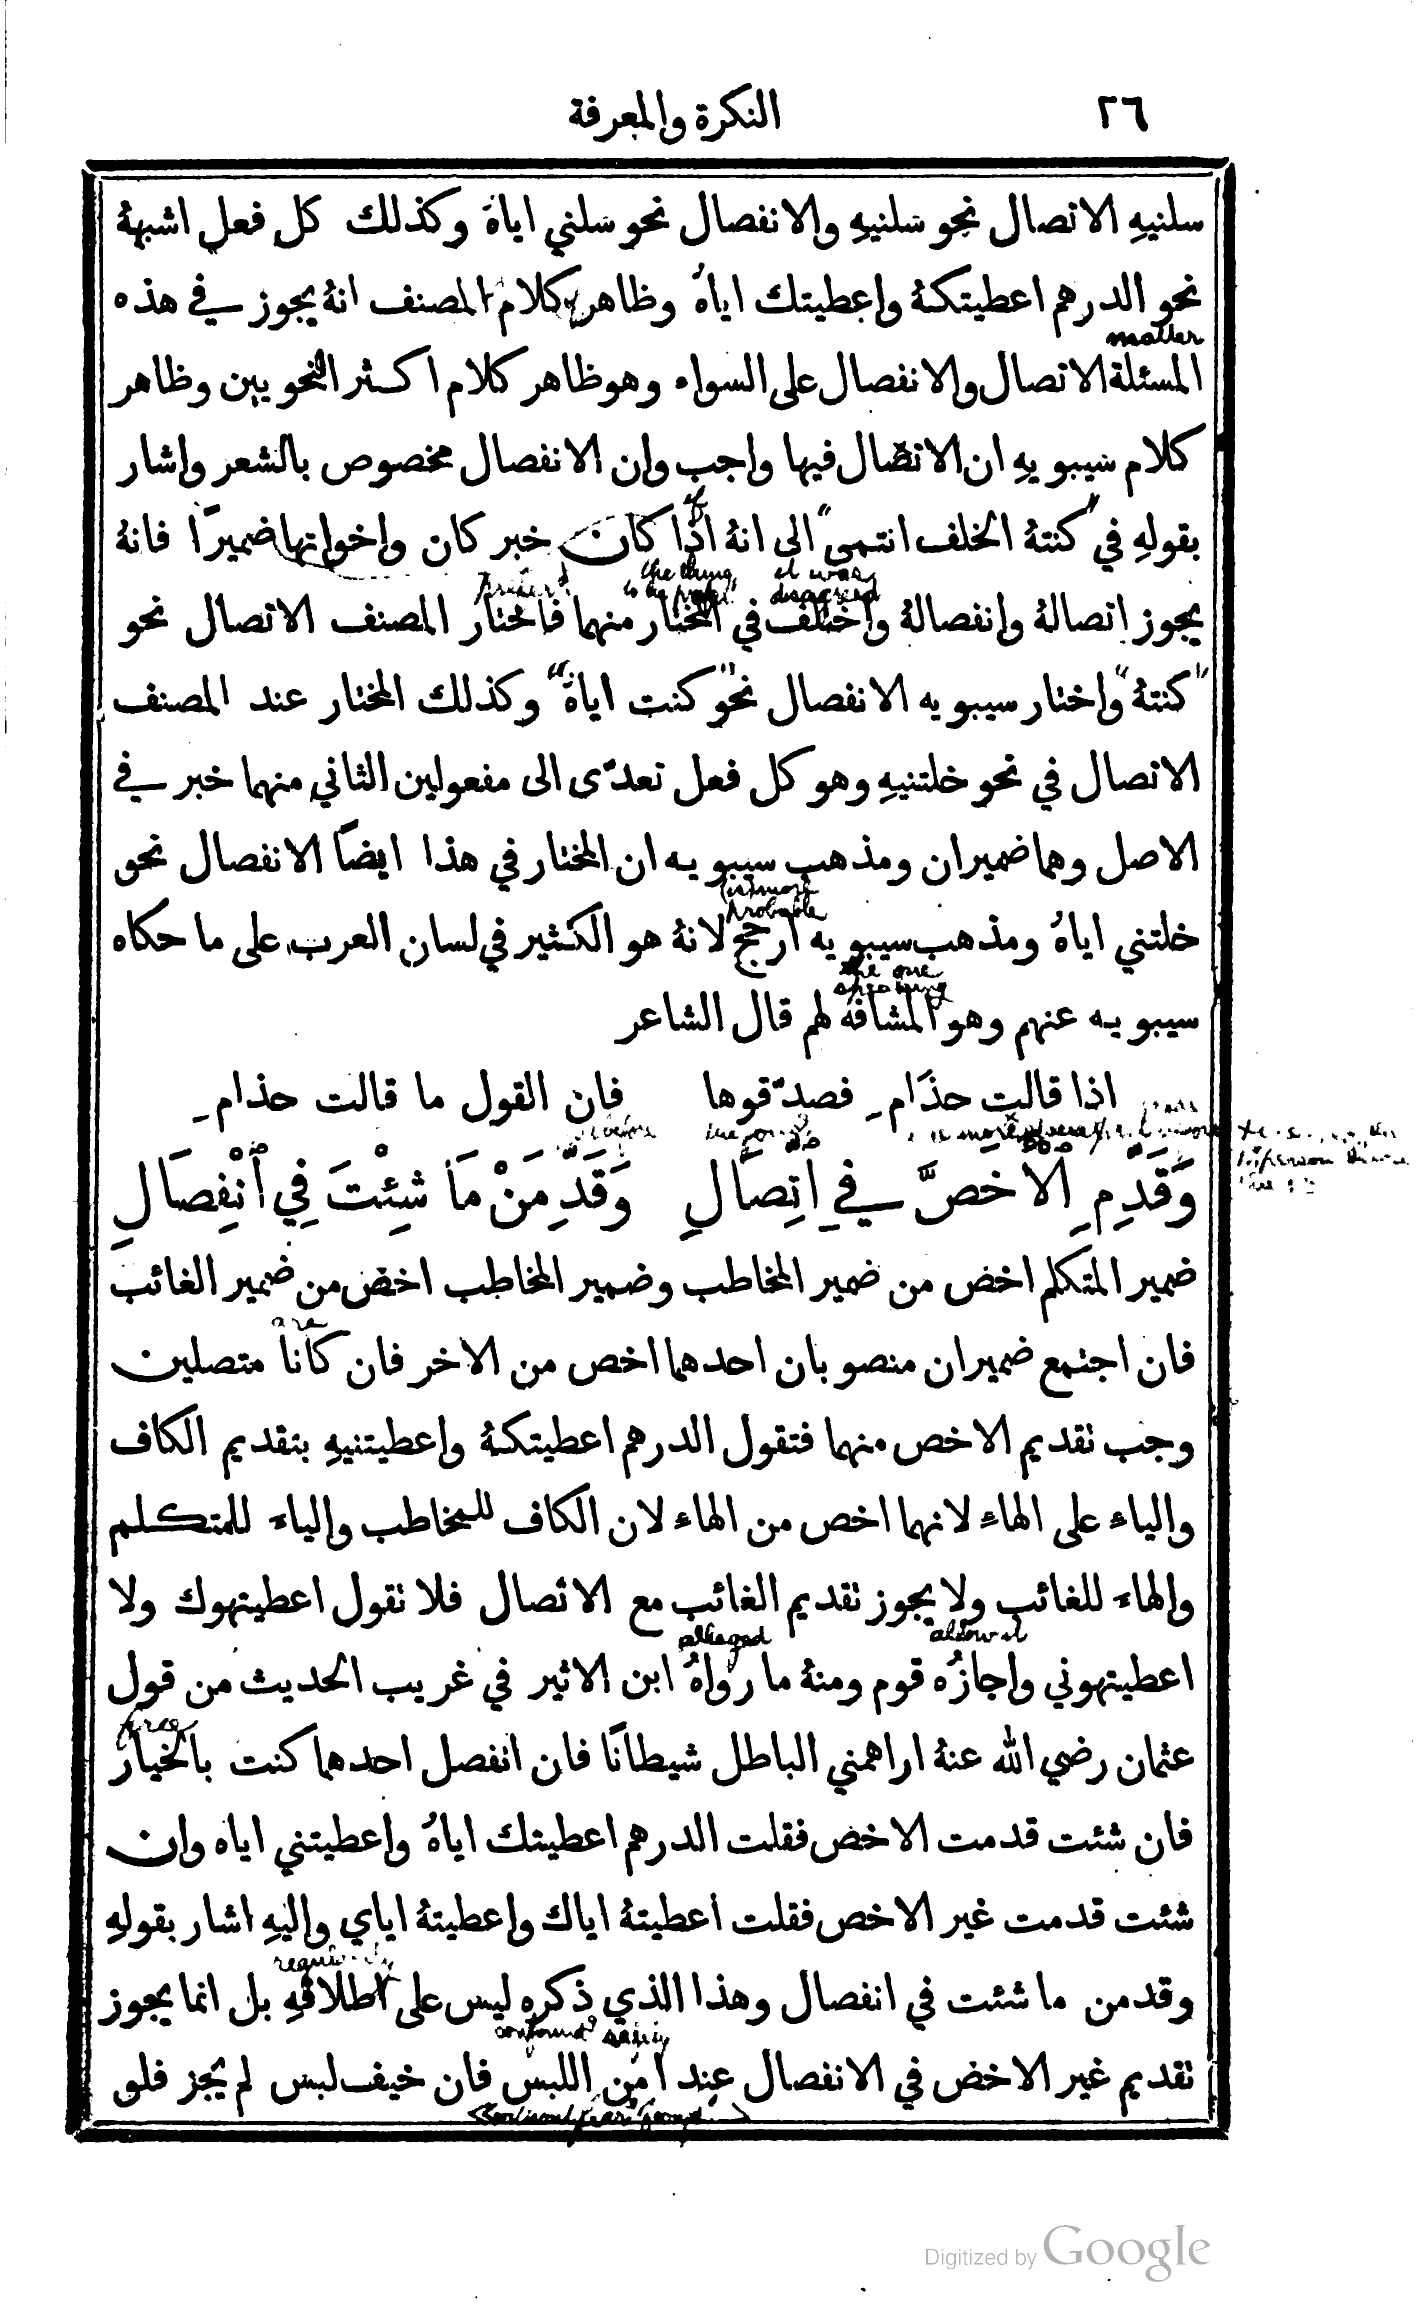 ٢٦ النكرة والمعرفة
سلنيهِ الاتصال نحو سَلنيهِ والانفصال نحو سَلني اياهُ وكذلك كل فعل اشبههُ
نحو الدرهم اعطيتكهُ واعطيتك اياهُ وظاهر كلام المصنف انهُ يجوز في هذه
matter
المسئلة الاتصال والانفصال على السواء وهو ظاهر كلام اكثر النحويين وظاهر
كلام سيبويهِ ان الاتصال فيها واجب وان الانفصال مخصوص بالشعر واشار
if
بقولهِ في "كنتهُ الخلف انتمى" الى انهُ اذا كان خبر كان واخواتها ضميرًا فانهُ
the thing it was
to be disagreed
يجوز اتصالهُ وانفصالهُ واختلف في المختار منهما فاختار المصنف الاتصال نحو
"كنتهُ" واختار سيبويه الانفصال نحو "كنت اياهُ" وكذلك المختار عند المصنف
الاتصال في نحو خلتنيهِ وهو كل فعل تعدّى الى مفعولين الثاني منهما خبر في
الاصل وهما ضميران ومذهب سيبويه ان المختار في هذا ايضًا الانفصال نحو
is most
probable
خلتني اياهُ ومذهب سيبويه ارجح لانهُ هو الكثير في لسان العرب على ما حكاه
the one
speaking
سيبويه عنهم وهو المشافه لهم قال الشاعر
اذا قالت حذَام ِ فصدّقوها فان القول ما قالت حذام ِ
is more
وَقَدِّمِ الاخصَّ في اتِصَالِ وَقَدِّمَنْ مَا شِئْتَ فِي ٱنْفِصَالِ
ضمير المتكلم اخص من ضمير المخاطب وضمير المخاطب اخص من ضمير الغائب
are
فان اجتمع ضميران منصوبان احدهما اخص من الاخر فان كانا متصلين
وجب تقديم الاخص منهما فتقول الدرهم اعطيتكهُ واعطيتنيهِ بتقديم الكاف
والياء على الهاء لانهما اخص من الهاء لان الكاف للمخاطب والياء للمتكلم
والهاء للغائب ولا يجوز تقديم الغائب مع الاتصال فلا تقول اعطيتهوك ولا
alleged allowed
اعطيتهوني واجازه قوم ومنهُ ما رواهُ ابن الاثير في غريب الحديث من قول
free
عثمان رضي الله عنهُ اراهمني الباطل شيطانًا فان انفصل احدهما كنت بالخيار
فان شئت قدمت الاخص فقلت الدرهم اعطيتك اياهُ واعطيتني اياه وان
شئت قدمت غير الاخص فقلت اعطيتهُ اياك واعطيتهُ اياي واليهِ اشار بقولهِ
وقدمن ما شئت في انفصال وهذا الذي ذكره ليس على اطلاقهِ بل انما يجوز
تقديم غير الاخص في الانفصال عند امن اللبس فان خيف لبس لم يجز فلو
Digitized by Google